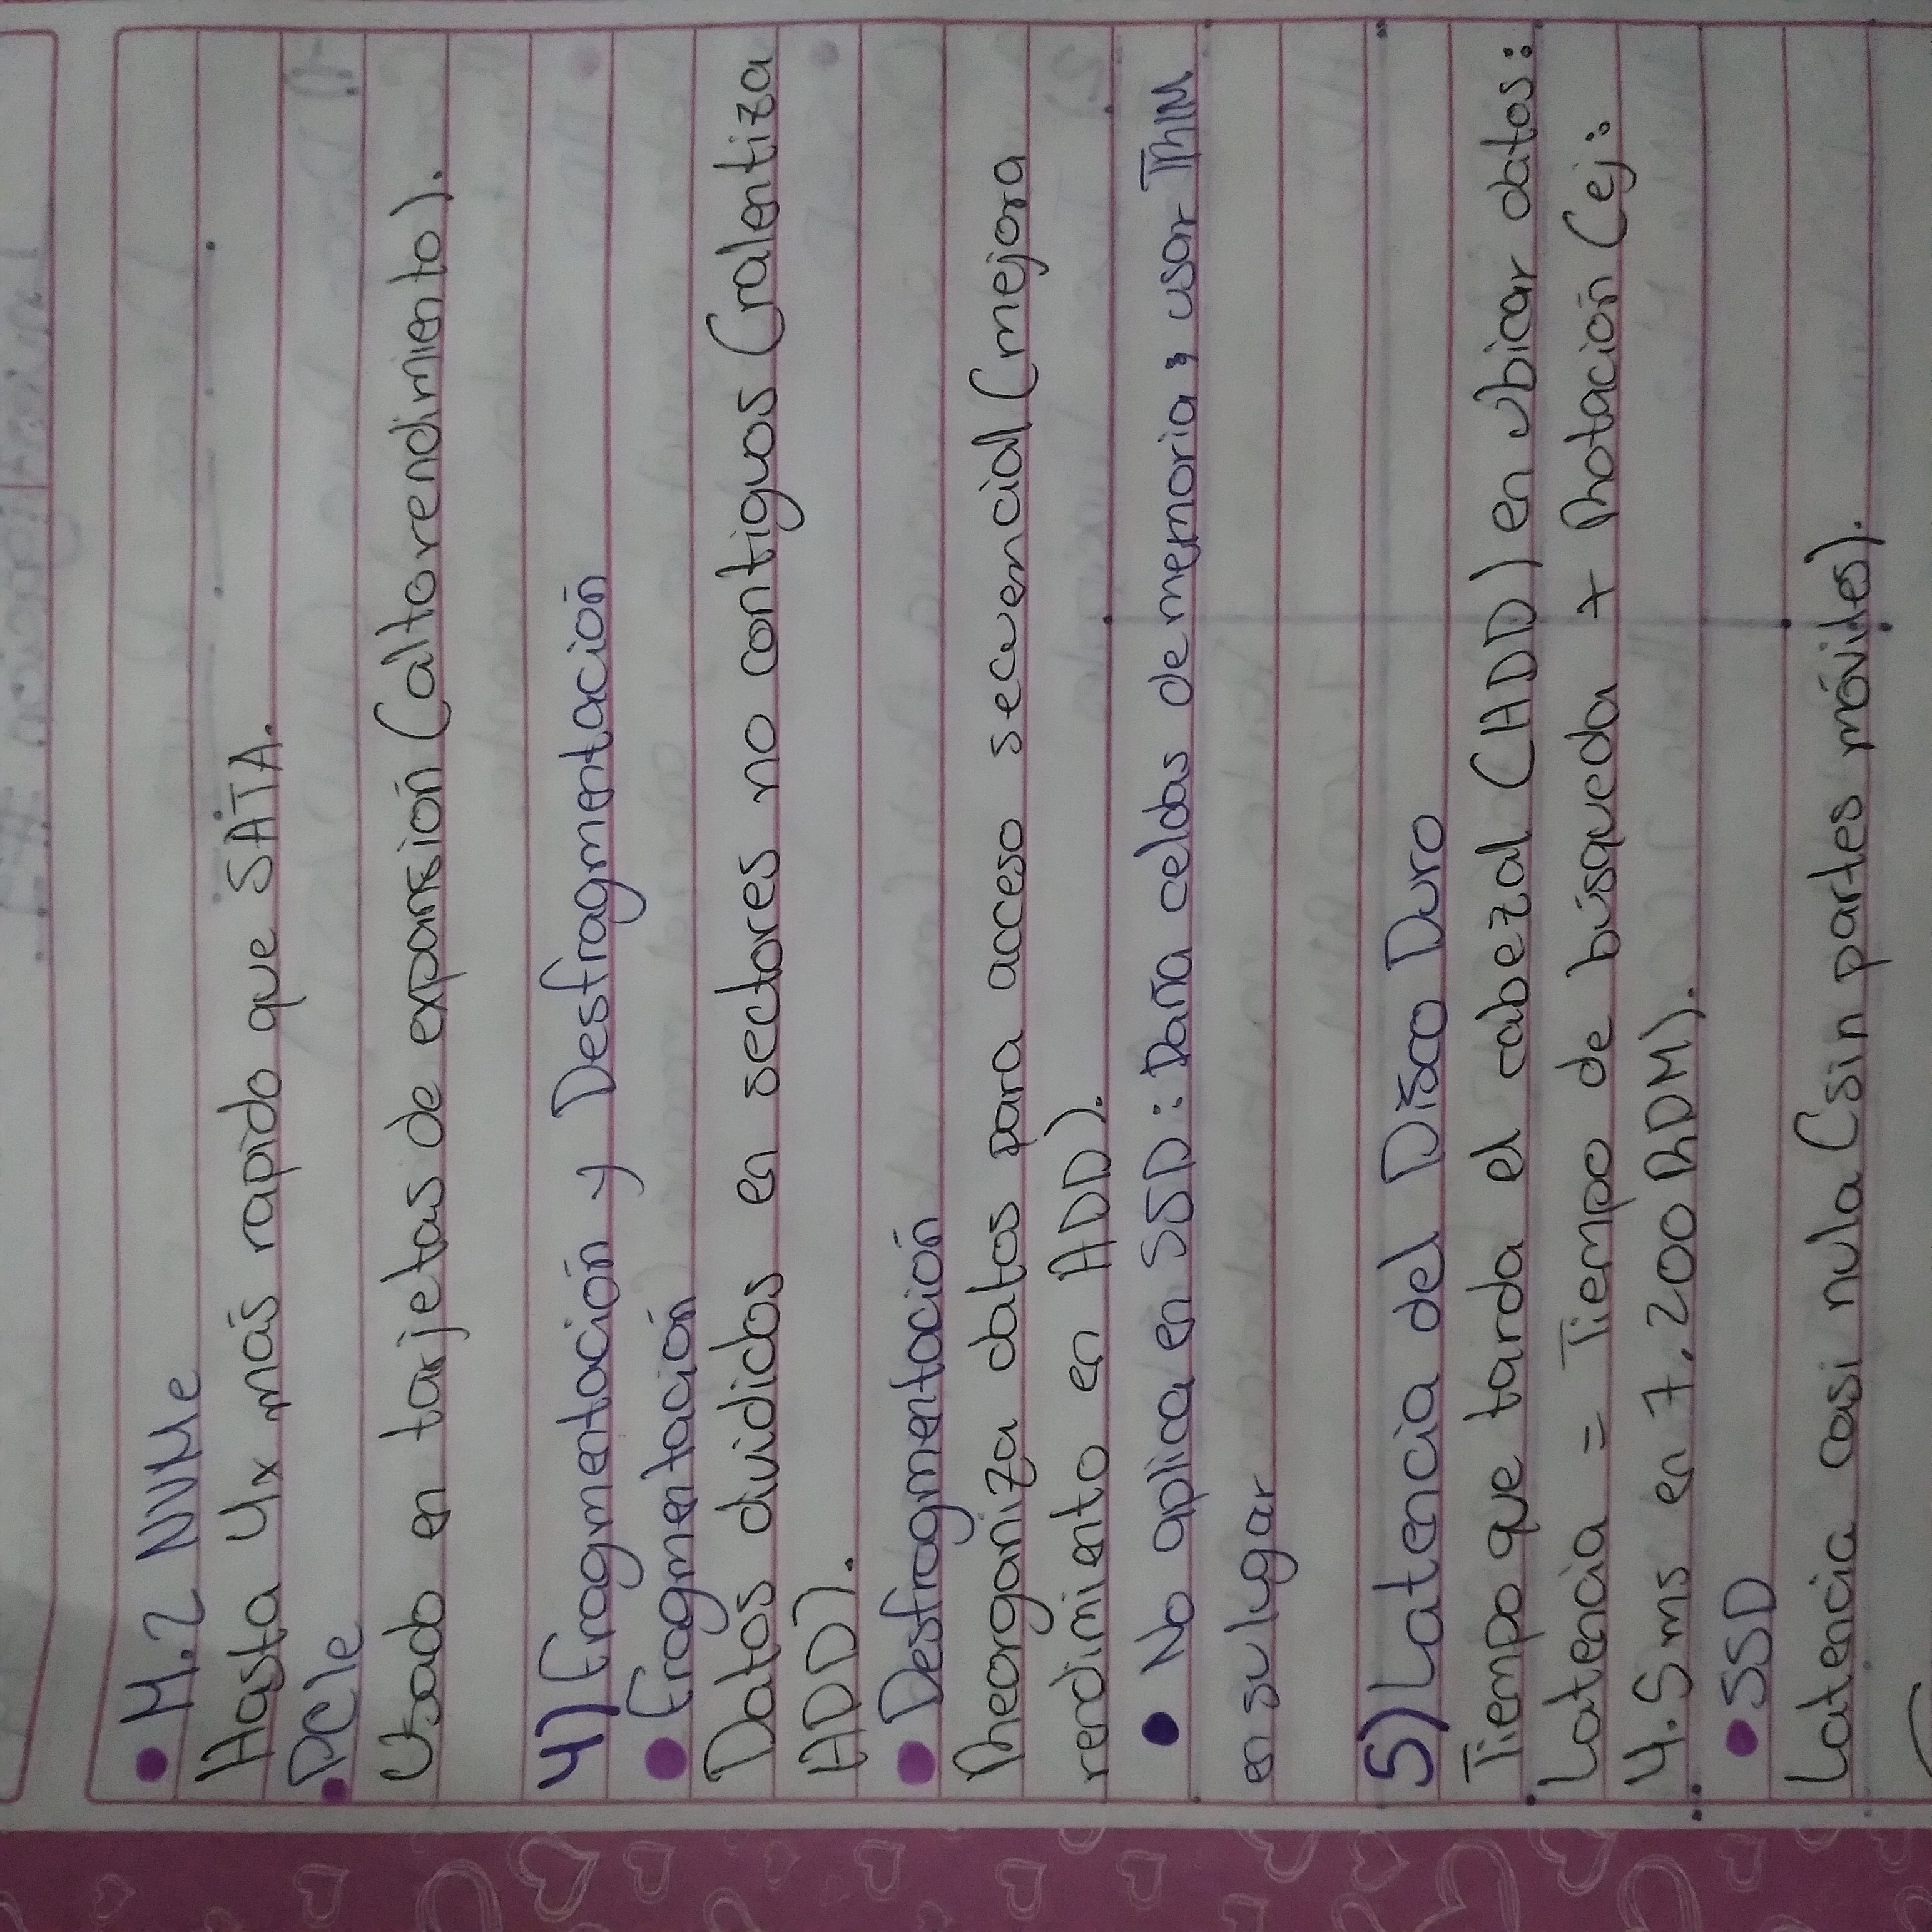 • M.2 NVMe
Hasta 4x más rapido que SATA.
• PCIe
Usado en tarjetas de expansión (alto rendimiento).
4) Fragmentación y Desfragmentación
• Fragmentación
Datos dividos en sectores no contiguos (ralentiza
HDD).
• Desfragmentación
Reorganiza datos para acceso secuencial (mejora
rendimiento en HDD).
• No aplica en SSD: Daña celdas de memoria, usar TRIM
en su lugar
5) Latencia del Disco Duro
Tiempo que tarda el cabezal (HDD) en ubicar datos:
Latencia = Tiempo de búsqueda + Rotación (ej:
4.5ms en 7,200 RPM).
• SSD
Latencia casi nula (sin partes móviles).